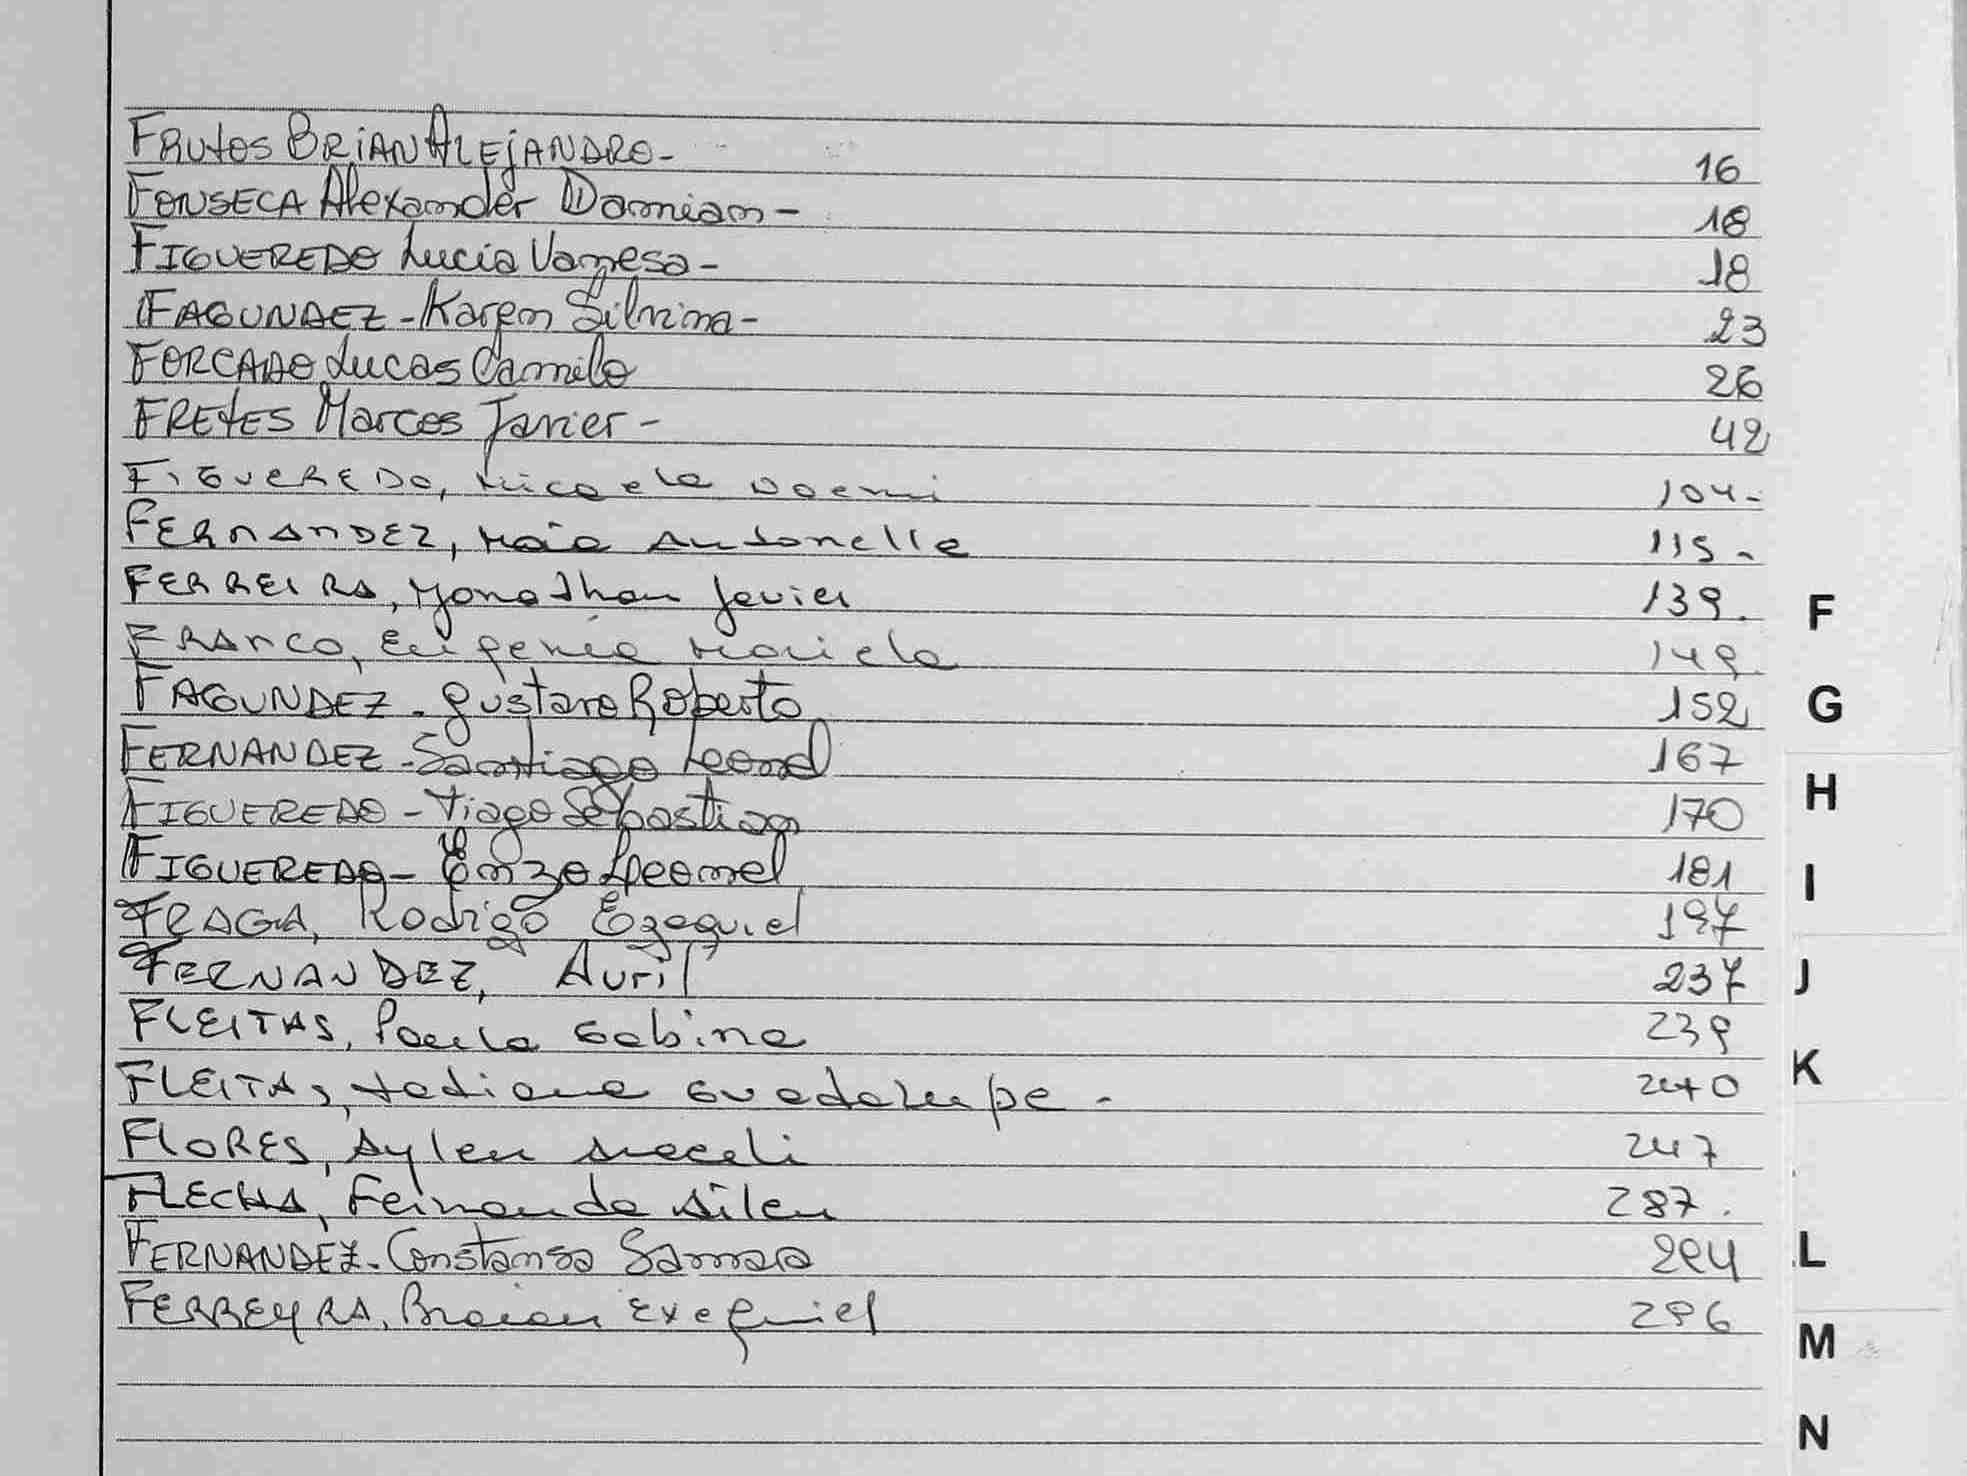 FRUtos BRIAN ALEJANDRO- 16
FONSECA Alexander Damian- 18
FIGUEREDO Lucia Vanesa- 18
FAGUNDEZ-Karen Silvina- 23
FORCADO Lucas Camilo 26
FREtES Marcos Javier- 42
FIGUEREDO, Micaela Noemi 104-
FERNANDEZ, Maia Antonella 115-
FERREIRA, Yonathan Javier 139.
FRANCO, Eugenia Mariela 149
FAGUNDEZ-Gustavo Roberto 152
FERNANDEZ-Santiago Leonel 167
FIGUEREDO-Tiago Sebastian 170
FIGUEREDO-Enzo Leonel 181
FRAGA, Rodrigo Ezequiel 197
FERNANDEZ, Avril 237
F
FLEITAS, Paula Sabina 239
G
FLEITAS, Tatiana Guadalupe- 240
H
FLORES, Aylen Araceli 247
I
FLECHA, Fernanda Ailen 287.
J
FERNANDEZ-Constansa Samara 294
K
FERREYRA, Braian Exequiel 296
L
M
N